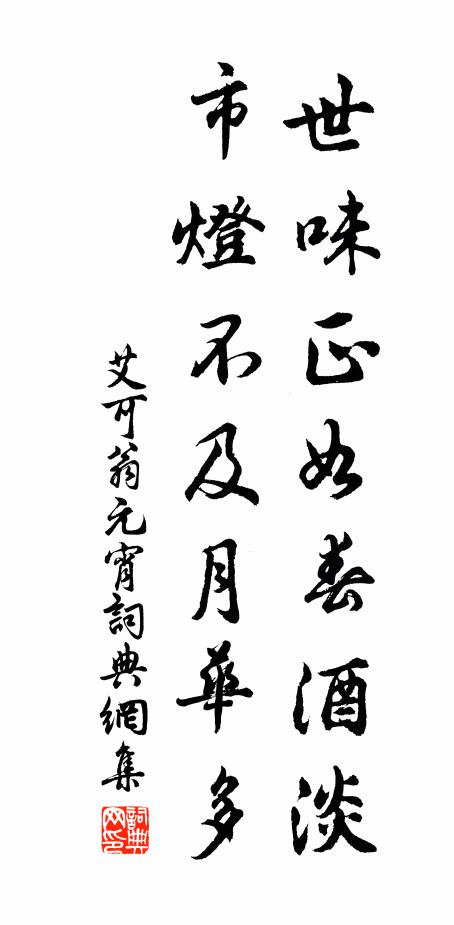 世味正如春酒淡
市燈不及月華多
艾可翁元宵詞典網集
詞典網印